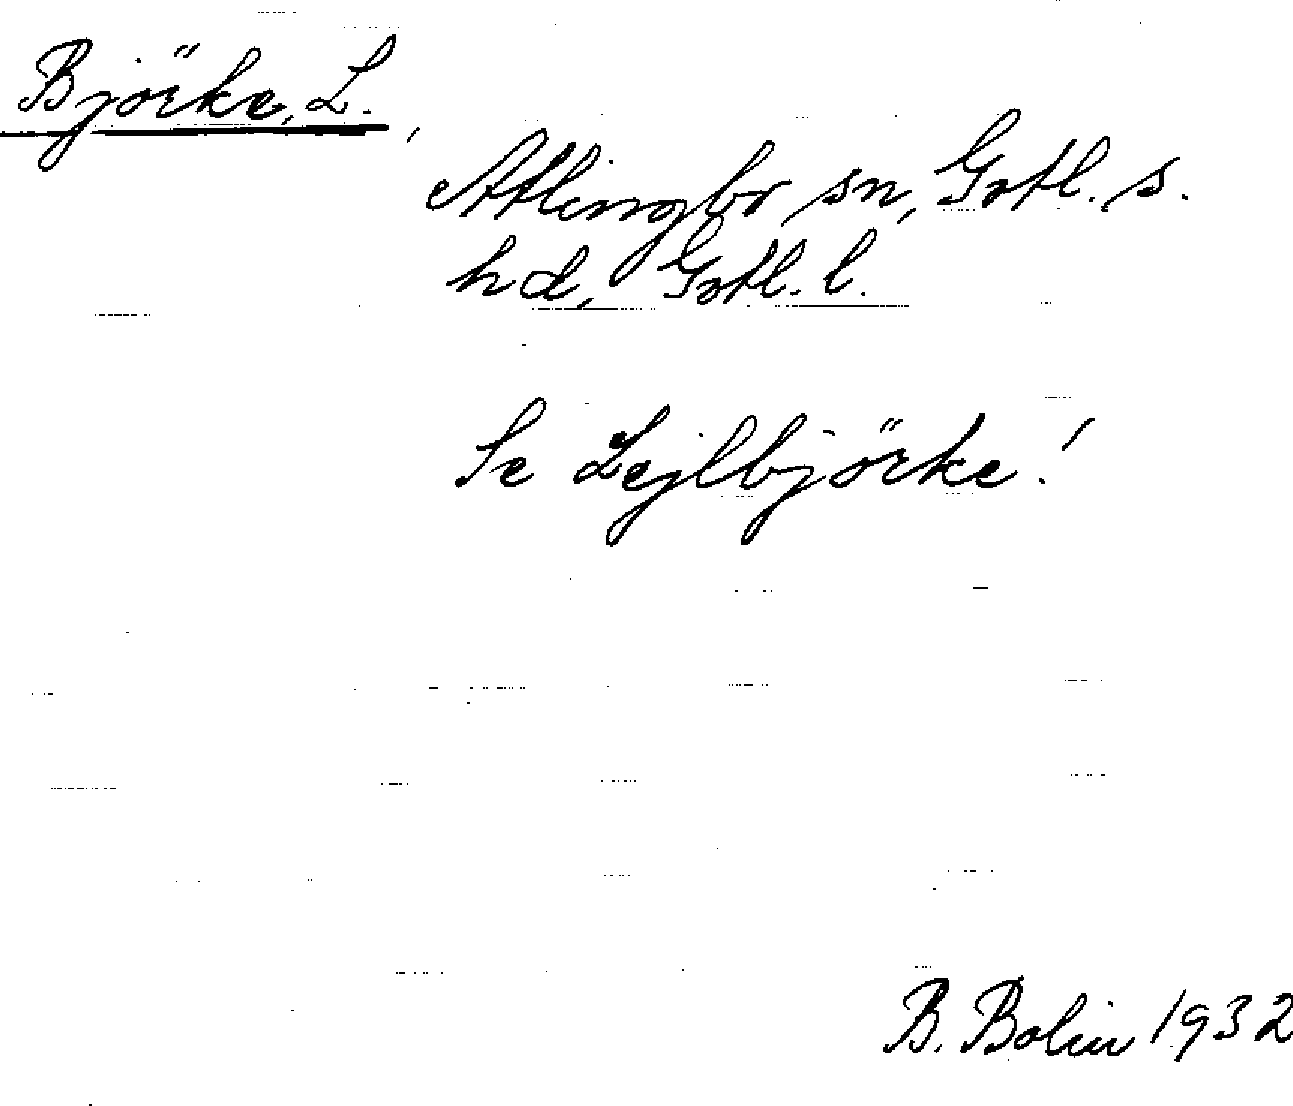 Björke, L.
Atlingbo sn, Gotl. s.
hd, Gotl. l.
Se Lejlbjörke!
B. Bolin 1932